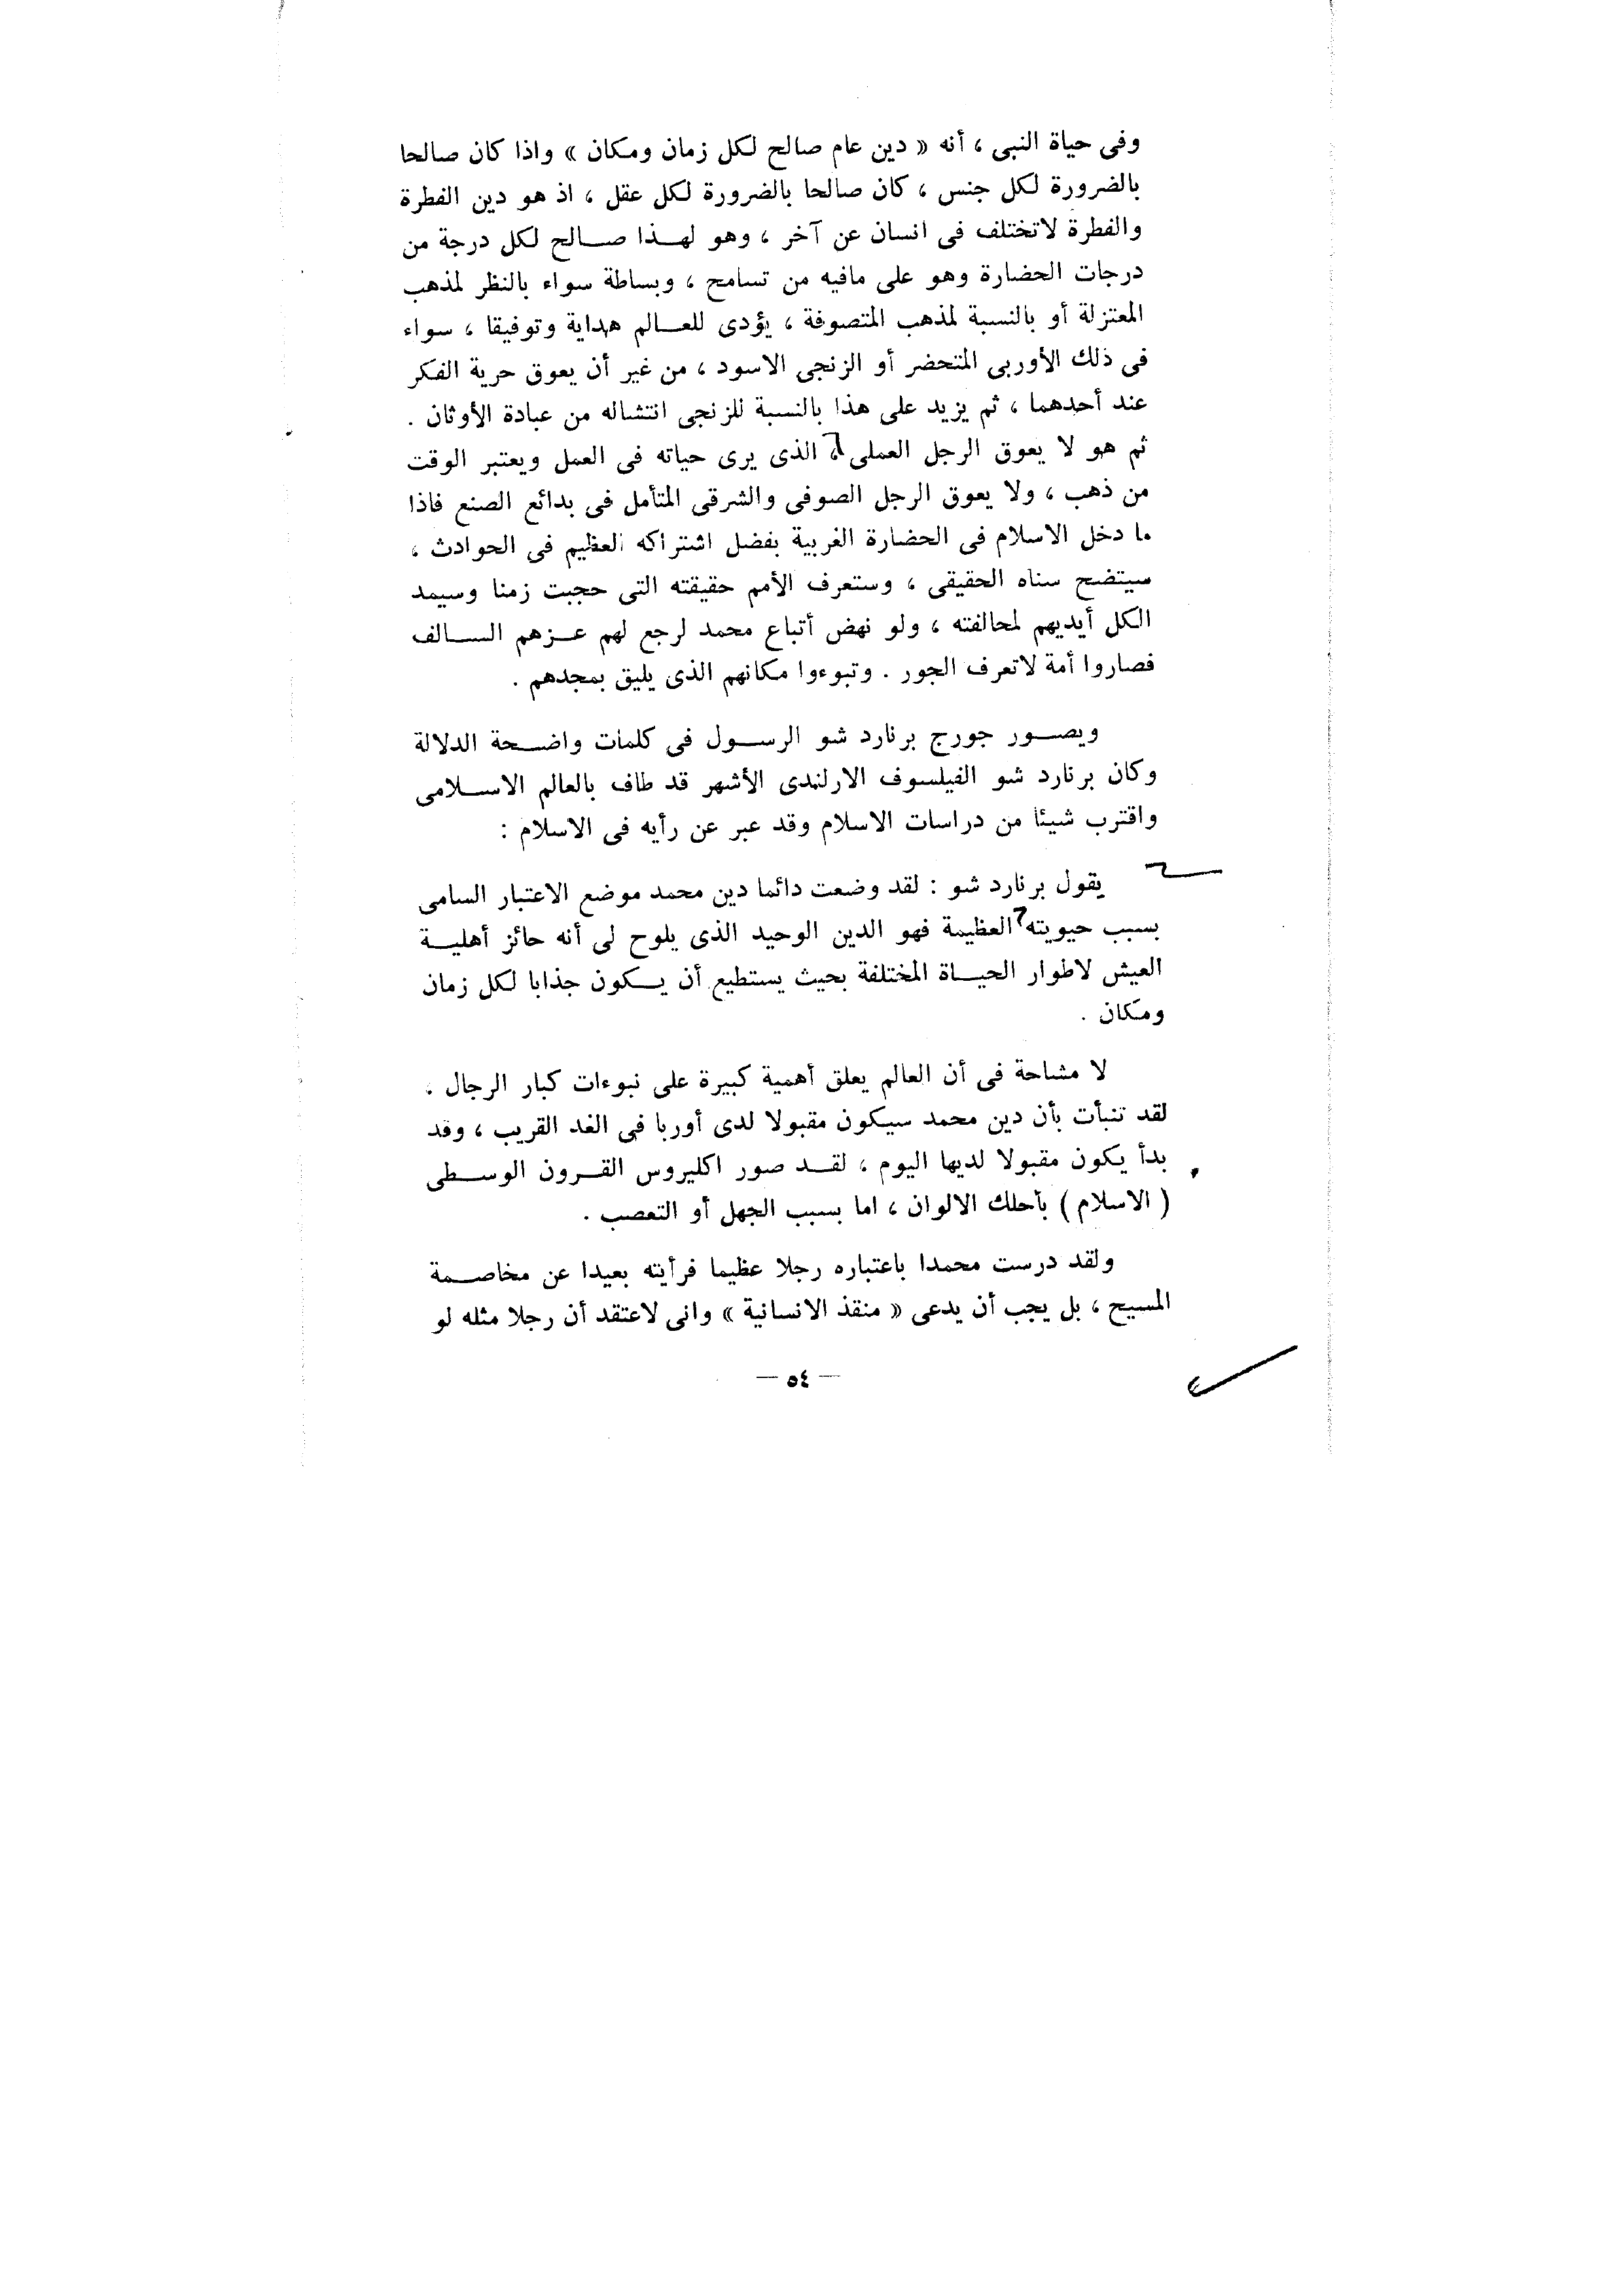 وفى حياة النبى ، أنه « دين عام صالح لكل زمان ومكان » واذا كان صالحا
بالضرورة لكل جنس ، كان صالحا بالضرورة لكل عقل ، اذ هو دين الفطرة
والفطرة لاتختلف فى انسان عن آخر ، وهو لهـذا صـالح لكل درجة من
درجات الحضارة وهو على مافيه من تسامح ، وبساطة سواء بالنظر لمذهب
المعتزلة أو بالنسبة لمذهب المتصوفة ، يؤدى للعـالم هداية وتوفيقا ، سواء
فى ذلك الأوربى المتحضر أو الزنجى الاسود ، من غير أن يعوق حرية الفكر
عند أحدهما ، ثم يزيد على هذا بالنسبة للزنجى انتشاله من عبادة الأوثان .
ثم هو لا يعوق الرجل العملى ، الذى يرى حياته فى العمل ويعتبر الوقت
من ذهب ، ولا يعوق الرجل الصوفى والشرقى المتأمل فى بدائع الصنع فاذا
ما دخل الاسلام فى الحضارة الغربية بفضل اشتراكه العظيم فى الحوادث ،
سيتضح سناه الحقيقى ، وستعرف الأمم حقيقته التى حجبت زمنا وسيمد
الكل أيديهم لمحالفته ، ولو نهض أتباع محمد لرجع لهم عـزهم السـالف
فصاروا أمة لاتعرف الجور . وتبوءوا مكانهم الذى يليق بمجدهم .
ويصـور جورج برنارد شو الرسـول فى كلمات واضـحة الدلالة
وكان برنارد شو الفيلسوف الارلندى الأشهر قد طاف بالعالم الاسـلامى
واقترب شيئا من دراسات الاسلام وقد عبر عن رأيه فى الاسلام :
يقول برنارد شو : لقد وضعت دائما دين محمد موضع الاعتبار السامى
بسبب حيويته العظيمة فهو الدين الوحيد الذى يلوح لى أنه حائز أهليـة
العيش لاطوار الحيـاة المختلفة بحيث يستطيع أن يـكون جذابا لكل زمان
ومكان .
لا مشاحة فى أن العالم يعلق أهمية كبيرة على نبوءات كبار الرجال .
لقد تنبأت بأن دين محمد سيكون مقبولا لدى أوربا فى الغد القريب ، وقد
بدأ يكون مقبولا لديها اليوم ، لقـد صور اكليروس القـرون الوسـطى
( الاسلام ) بأحلك الالوان ، اما بسبب الجهل أو التعصب .
ولقد درست محمدا باعتباره رجلا عظيما فرأيته بعيدا عن مخاصـمة
المسيح ، بل يجب أن يدعى « منقذ الانسانية » وانى لاعتقد أن رجلا مثله لو
— ٥٤ —